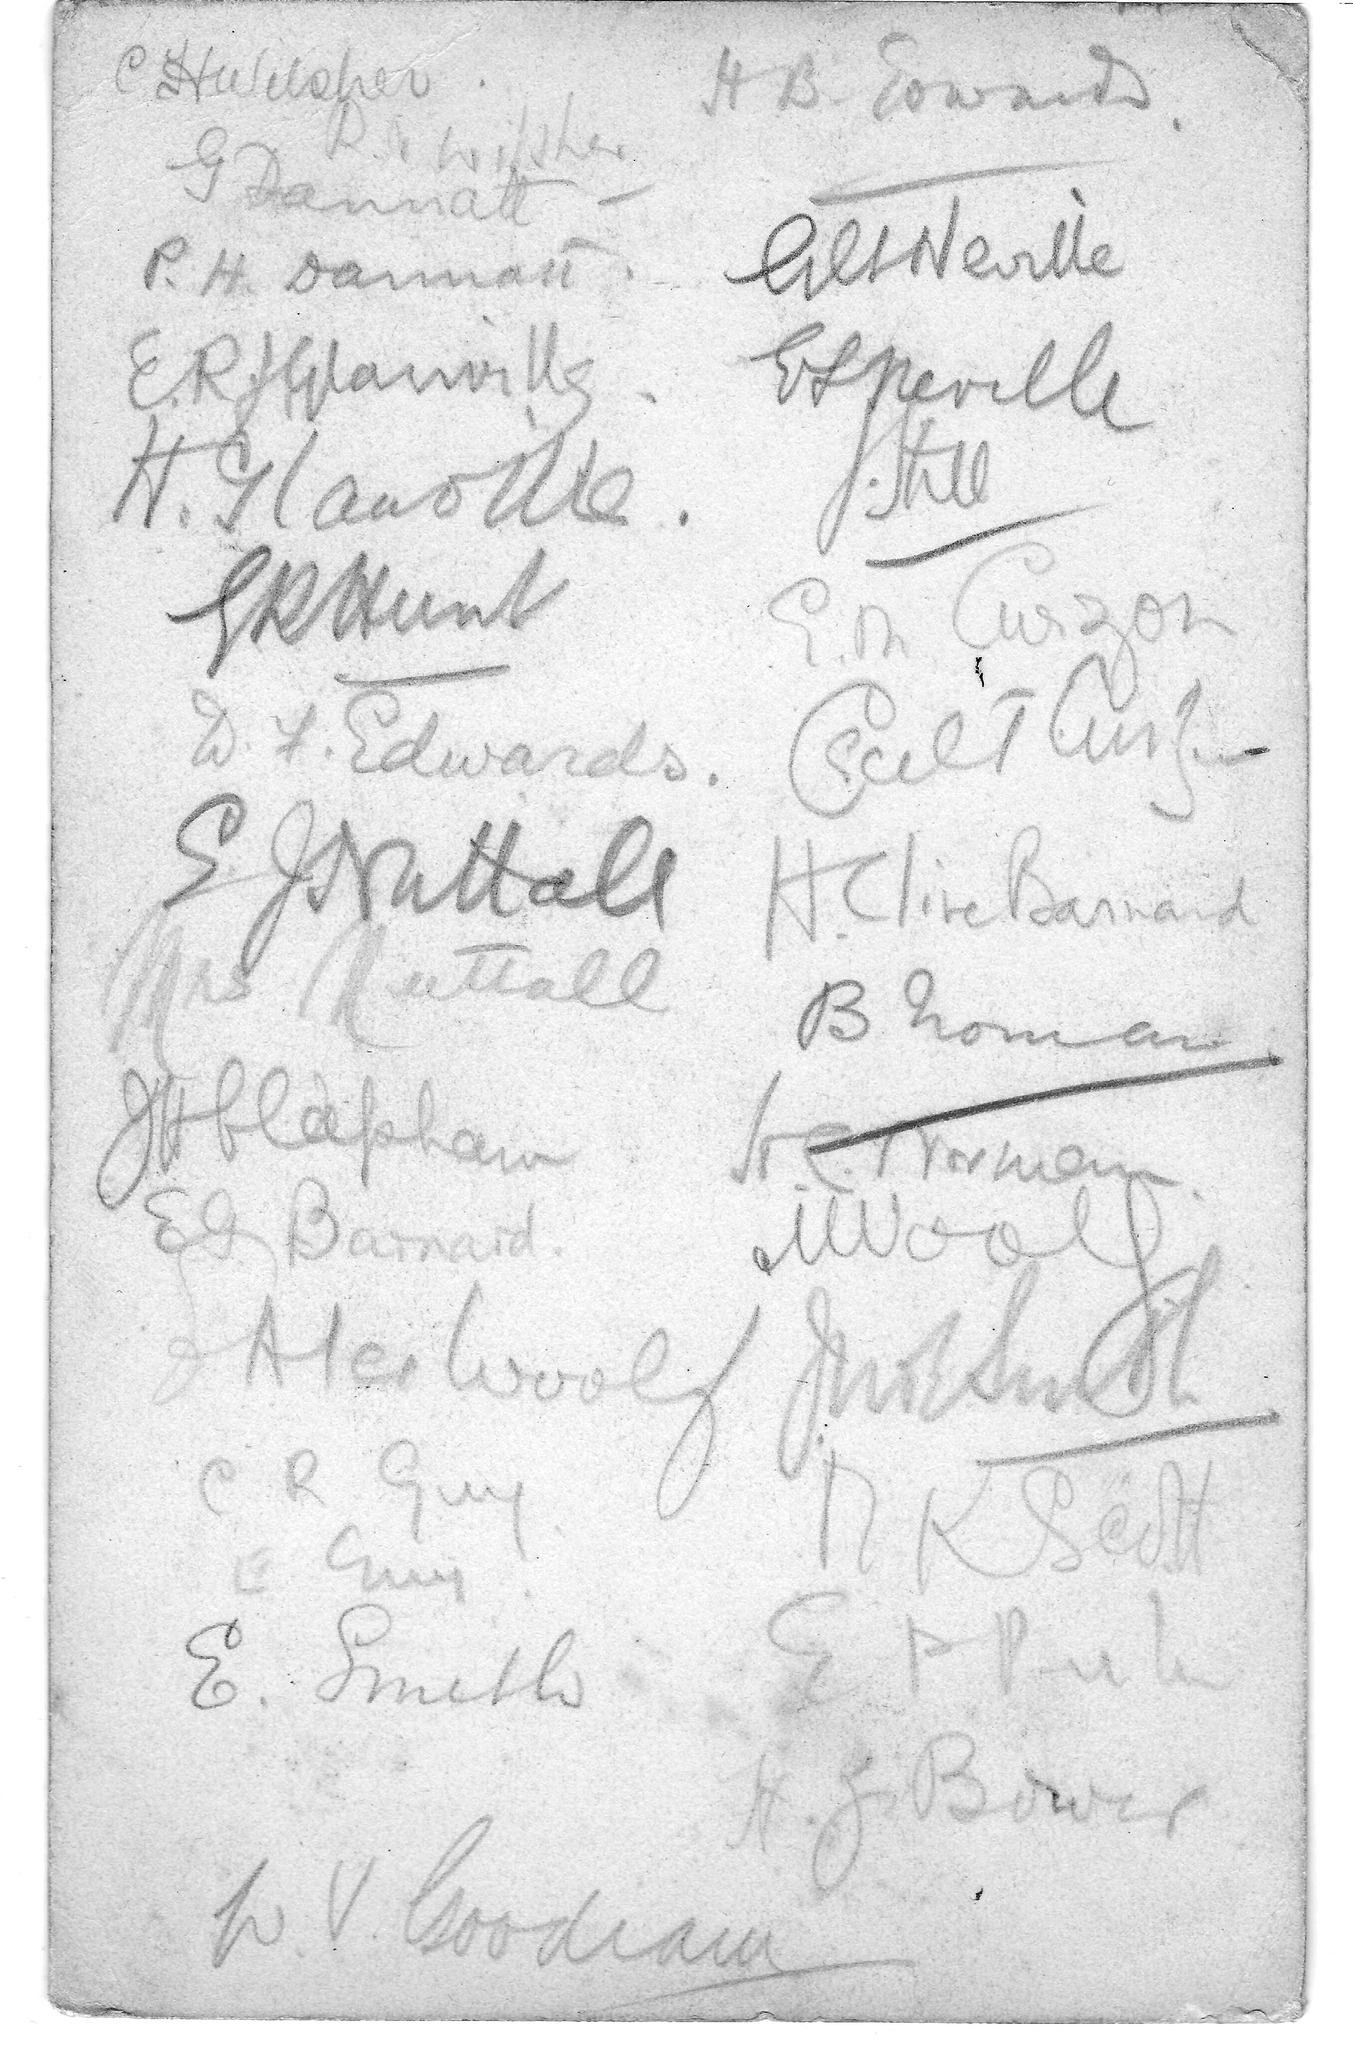 C H Wilsher.
R. V Wilsher
G Dannatt —
P. H. Dannatt.
E. R. J Glanville.
H. Glanville.
G R Hunt
D. F. Edwards.
E. J. Nuttall
Mrs Nuttall
J H Clapham
E G Barnard.
Alex Woolf
C R Guy.
E Guy.
E. Smith
W. V. Goodram
H B. Edwards.
Neville
E L Neville
J. Still
E. M. Curzon
Cecil T Curzon
H. Clive Barnard
B Norman
Norman.
M Woolf
Smith
K Scott
E P
H. J. Bower